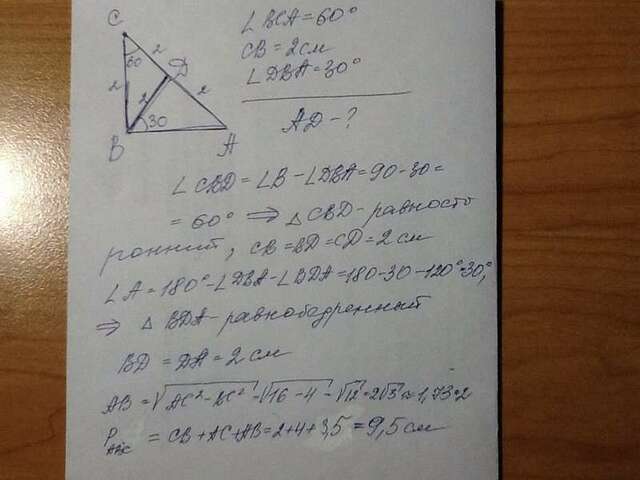 C
60
2
2
D
2
2
30
B
A
∠BCA=60°
CB=2см
∠DBA=30°
AD-?
∠CBD=∠B-∠DBA=90-30=
=60° ⇒ △CBD-равносто
ронний, CB=BD=CD=2см
∠A=180°-∠DBA-∠BDA=180-30-120°=30°,
⇒ △ BDA-равнобедренный
BD=DA=2см
AB=√AC²-BC²-√16-4-√12=2√3≈1,73·2
P_ABC = CB+AC+AB=2+4+3,5=9,5см